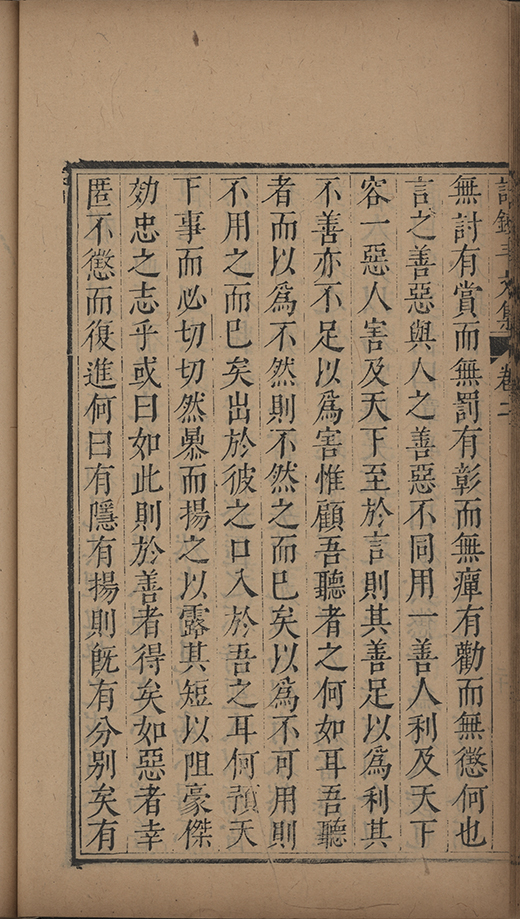 文集 卷二
無討有賞而無罰有彰而無癉有勸而無懲何也
言之善惡與人之善惡不同用一善人利及天下
容一惡人害及天下至於言則其善足以爲利其
不善亦不足以爲害惟顧吾聽者之何如耳吾聽
者而以爲不然則不然之而已矣以爲不可用則
不用之而已矣出於彼之口入於吾之耳何預天
下事而必切切然暴而揚之以露其短以阻豪傑
効忠之志乎或曰如此則於善者得矣如惡者幸
匿不懲而復進何曰有隱有揚則旣有分别矣有